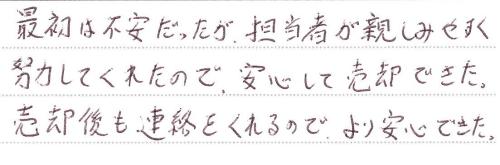 最初は不安だったが、担当者が親しみやすく
努力してくれたので、安心して売却できた。
売却後も連絡をくれるので、より安心できた。